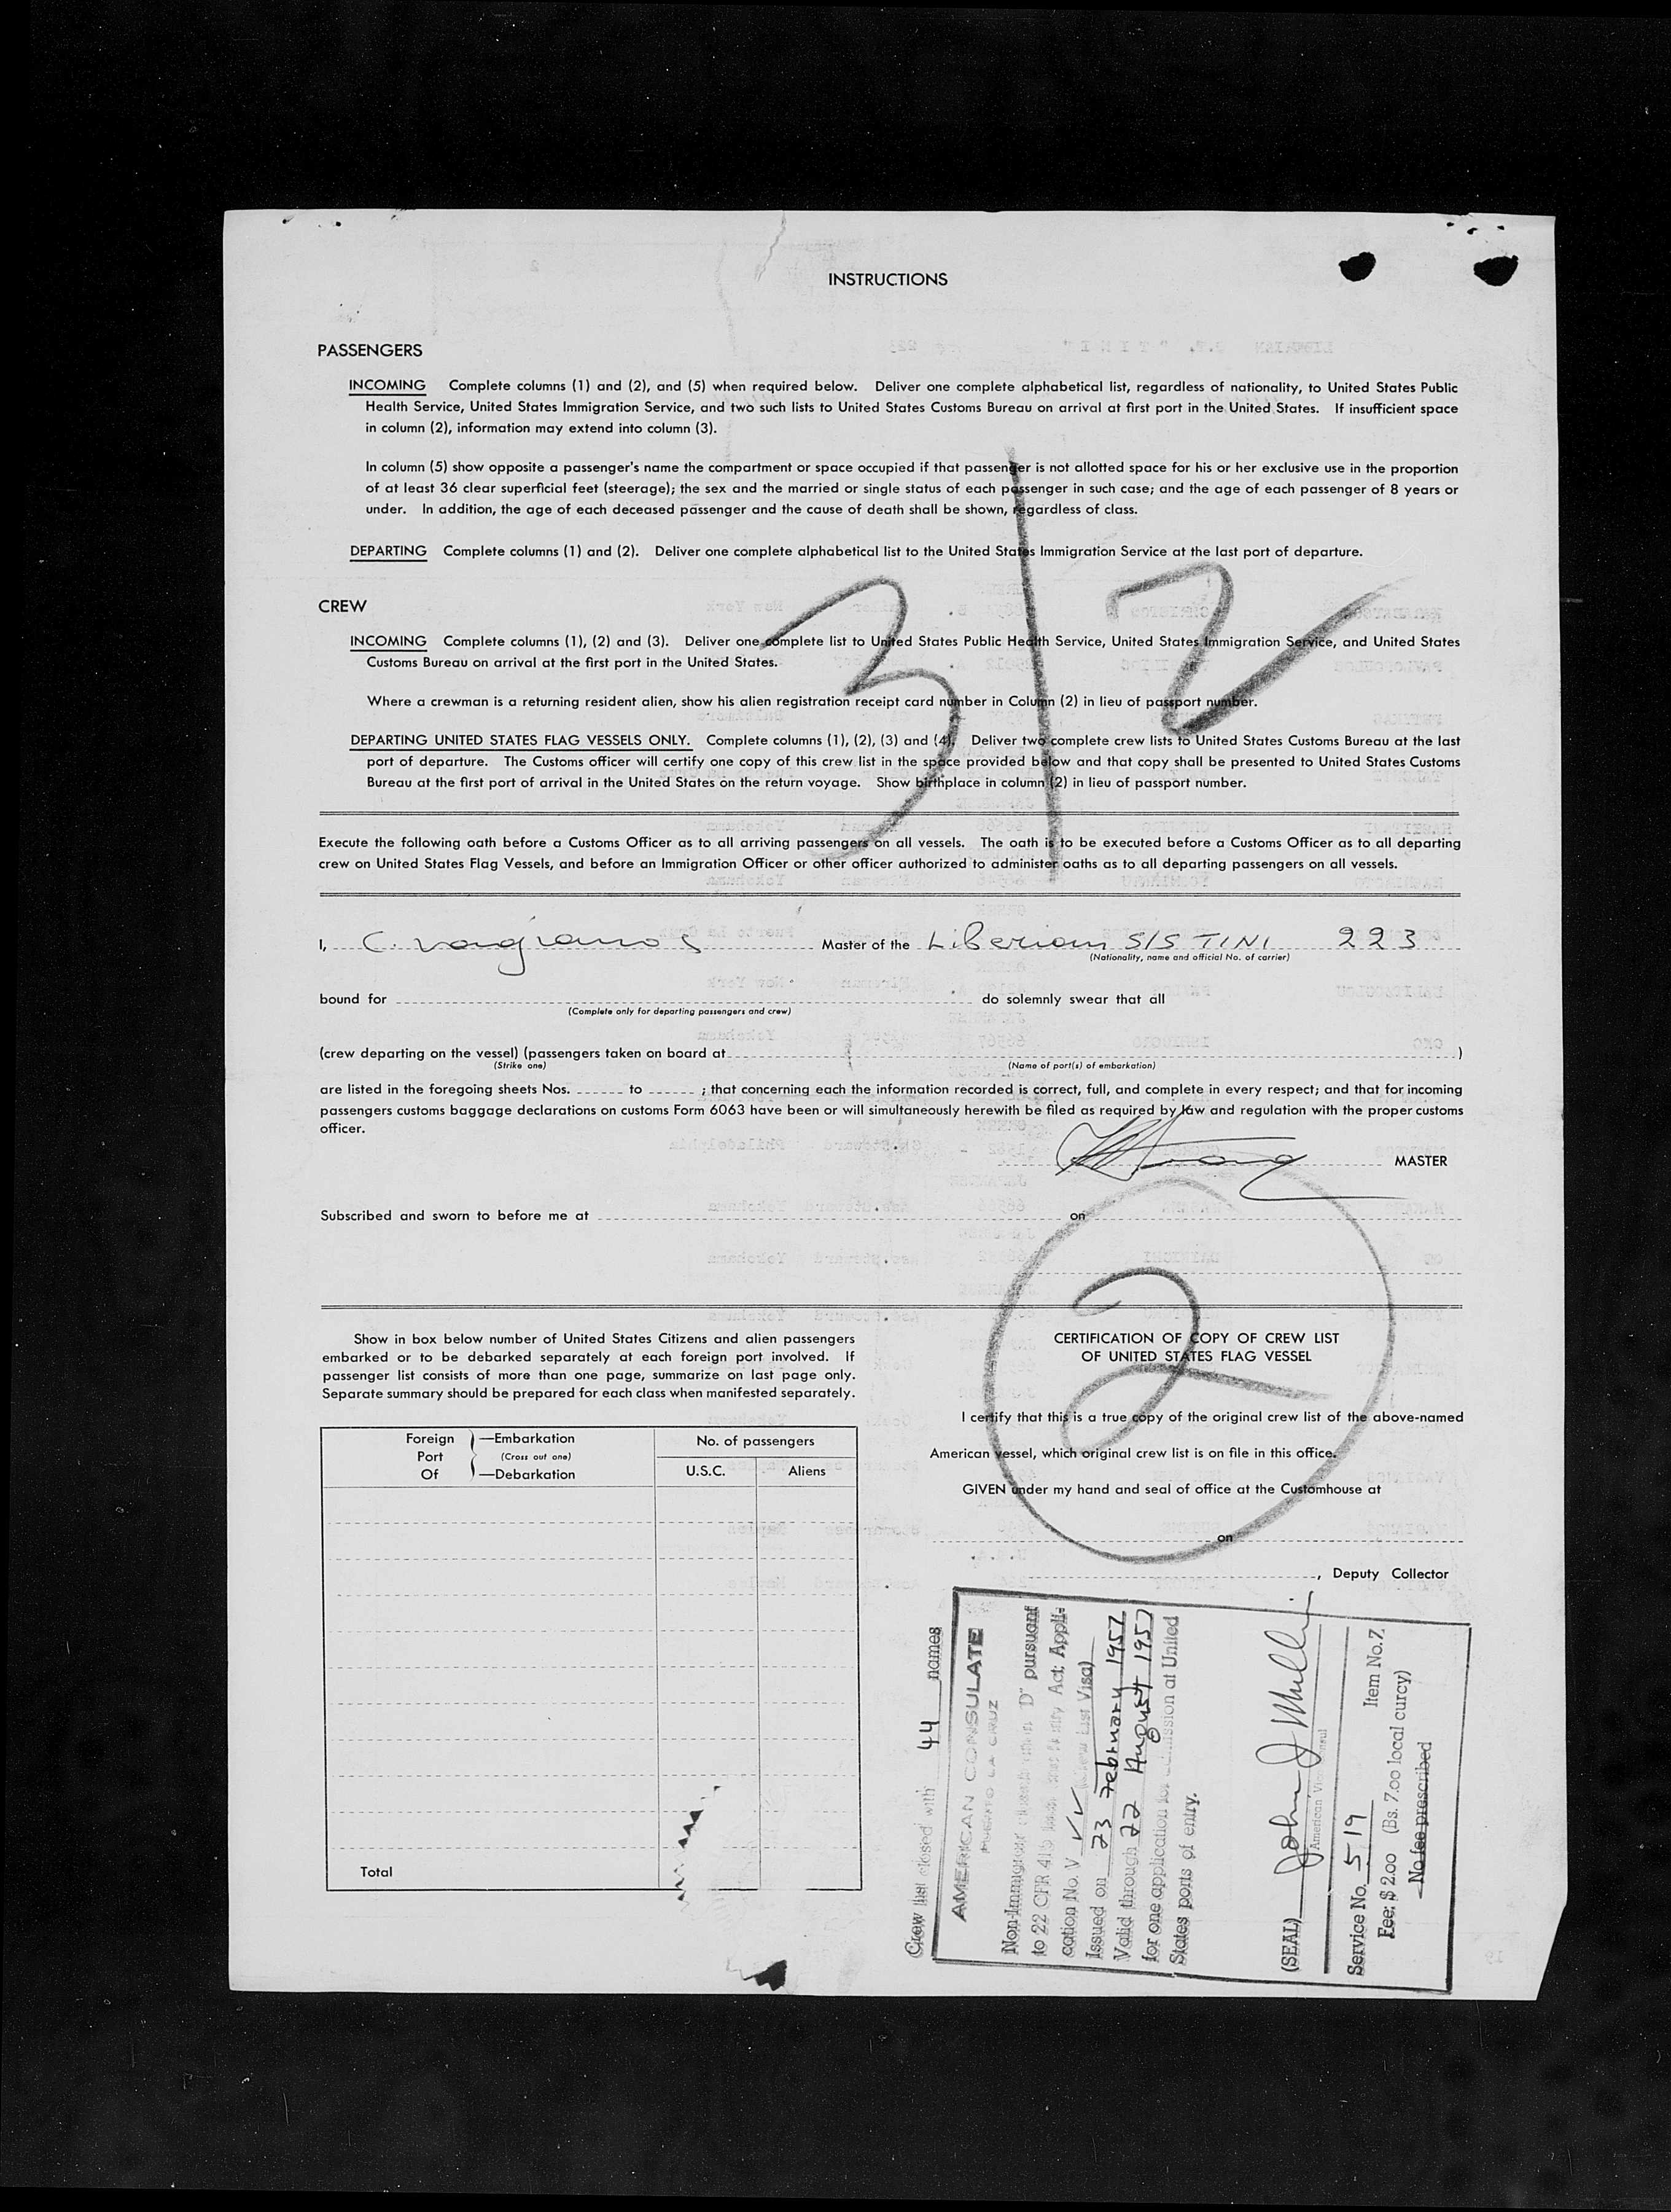 INSTRUCTIONS
PASSENGERS
INCOMING Complete columns (1) and (2), and (5) when required below. Deliver one complete alphabetical list, regardless of nationality, to United States Public
Health Service, United States Immigration Service, and two such lists to United States Customs Bureau on arrival at first port in the United States. If insufficient space
in column (2), information may extend into column (3).
In column (5) show opposite a passenger's name the compartment or space occupied if that passenger is not allotted space for his or her exclusive use in the proportion
of at least 36 clear superficial feet (steerage); the sex and the married or single status of each passenger in such case; and the age of each passenger of 8 years or
under. In addition, the age of each deceased passenger and the cause of death shall be shown, regardless of class.
DEPARTING Complete columns (1) and (2). Deliver one complete alphabetical list to the United States Immigration Service at the last port of departure.
3/2
CREW
INCOMING Complete columns (1), (2) and (3). Deliver one complete list to United States Public Health Service, United States Immigration Service, and United States
Customs Bureau on arrival at the first port in the United States.
Where a crewman is a returning resident alien, show his alien registration receipt card number in Column (2) in lieu of passport number.
DEPARTING UNITED STATES FLAG VESSELS ONLY. Complete columns (1), (2), (3) and (4). Deliver two complete crew lists to United States Customs Bureau at the last
port of departure. The Customs officer will certify one copy of this crew list in the space provided below and that copy shall be presented to United States Customs
Bureau at the first port of arrival in the United States on the return voyage. Show birthplace in column (2) in lieu of passport number.
Execute the following oath before a Customs Officer as to all arriving passengers on all vessels. The oath is to be executed before a Customs Officer as to all departing
crew on United States Flag Vessels, and before an Immigration Officer or other officer authorized to administer oaths as to all departing passengers on all vessels.
I, C. Vangianos Master of the Liberian S/S TINI 223
(Nationality, name and official No. of carrier)
bound for do solemnly swear that all
(Complete only for departing passengers and crew)
(crew departing on the vessel) (passengers taken on board at )
(Strike one) (Name of port(s) of embarkation)
are listed in the foregoing sheets Nos. to ; that concerning each the information recorded is correct, full, and complete in every respect; and that for incoming
passengers customs baggage declarations on customs Form 6063 have been or will simultaneously herewith be filed as required by law and regulation with the proper customs
officer.
MASTER
Subscribed and sworn to before me at on
2
Show in box below number of United States Citizens and alien passengers
embarked or to be debarked separately at each foreign port involved. If
passenger list consists of more than one page, summarize on last page only.
Separate summary should be prepared for each class when manifested separately.
Foreign Port Of
—Embarkation
(Cross out one)
—Debarkation
No. of passengers
U.S.C. Aliens
Total
CERTIFICATION OF COPY OF CREW LIST
OF UNITED STATES FLAG VESSEL
I certify that this is a true copy of the original crew list of the above-named
American vessel, which original crew list is on file in this office.
GIVEN under my hand and seal of office at the Customhouse at
on
, Deputy Collector
Crew list closed with 44 names
AMERICAN CONSULATE
PUERTO LA CRUZ
Non-Immigrant classification "D" pursuant
to 22 CFR Act: Appli-
cation No. V VV (Crew List Visa)
Issued on 23 February 1957
Valid through 22 August 1957
for one application for admission at United
States ports of entry.
(SEAL) John J
American Vice Consul
Service No. 519 Item No. 7
Fee: $ 2.00 (Bs. 7.00 local curcy)
No fee prescribed